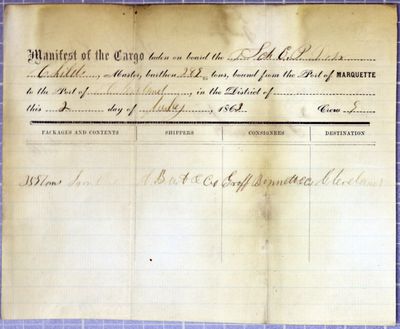 Manifest of the Cargo taken on board the Sch E. P.
Childs, Master, burthen tons, bound from the Port of MARQUETTE
to the Port of Cleveland, in the District of
this 2 day of July, 1863 Crew 9
PACKAGES AND CONTENTS SHIPPERS CONSIGNEES DESTINATION
Tons Iron & Co Groff Bennett & Co Cleveland